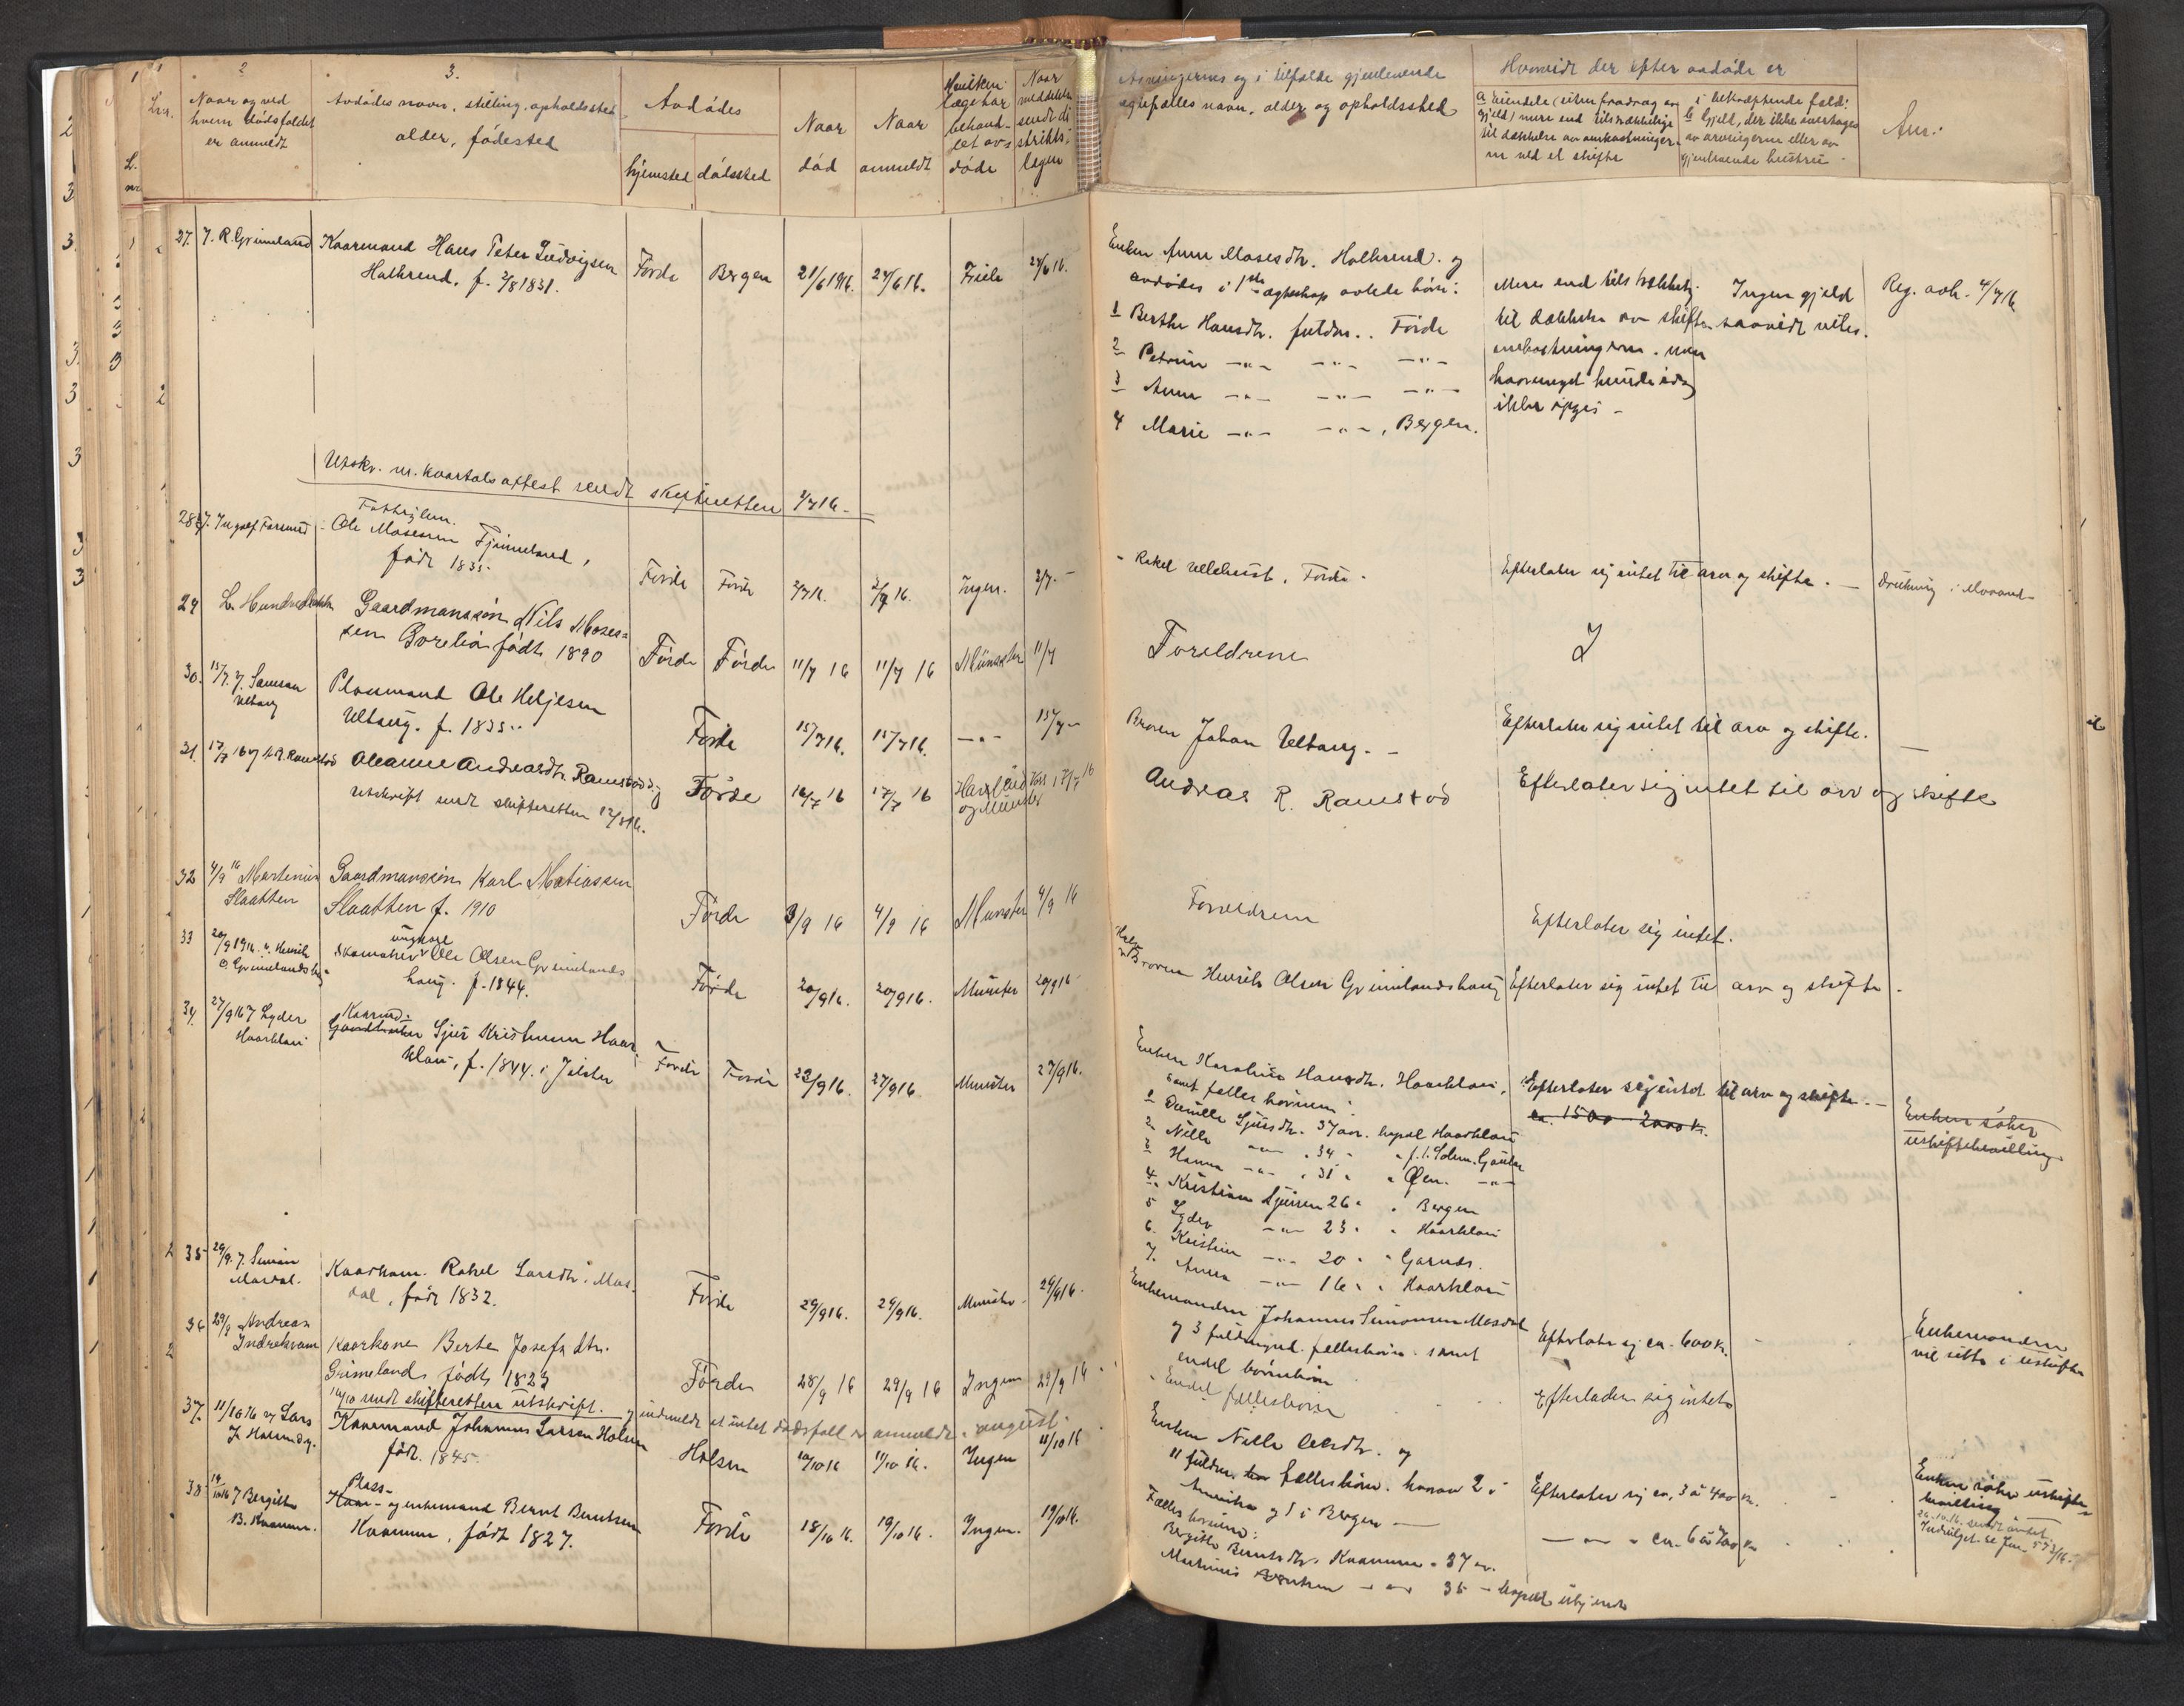 2
3.
Naar og ved
hvem dødsfaldet
er anmeldt
Avdødes navn, stilling, opholdssted,
alder, fødested
Avdødes
hjemsted dødssted
Naar
død
Naar
anmeldt
Hvilken
læge har
behand-
let avdøde
Naar
meddelelse
sendt di-
strikts-
lægen
Arvingernes og i tilfælde gjenlevende
egtefælles navn, alder og opholdssted
Hvorvidt der efter avdøde er
a Eiendele (uten fradrag av
gjeld) mere end tilstrækkelige
til dækkelse av omkostninger-
ne ved et skifte
i bekræftende fald:
b Gjeld, der ikke overtages
av arvingerne eller av
gjenlevende hustru
Anm:
27. J. R. Grimeland Kaarmand Hans Peter Ludvigsen
Halbrend. f. 2/8 1831. Førde Bergen 21/6 1916. 24/6 16. Friele 24/6 16.
Enken Anne Mosesdtr. Halbrend. og
avdødes i 1ste egteskap avlede børn:
1 Berthe Hansdtr. fuldm.. Førde
2 Petrine -"- -"- -"-
3 Anne -"- -"- -"-
4 Marie -"- -"-, Bergen.
Mere end tilstrækkelig
til dækkelse av skifte-
omkostningerne. men
hvormeget kunde idag
ikke opgis -
Ingen gjeld
saavidt vites.
Reg. avh. 4/7 16
Utskr. m. kvartalsattest sendt skifteretten 3/7 16 -
28 Ingolf Farsund Fattiglem.
Ole Mosesen Fjimeland,
født 1835. Førde Førde 2/7 16. 3/7 16. Ingen. 3/7. -
- Rakel Vellehust, Førde - Efterlater sig intet til arv og skifte. - Drukning i
29 L. Hundvebakke Gaardmandssøn Nils Moses-
sen Gorelia født 1890 Førde Førde 11/7 16 11/7 16 Münster 11/7
Foreldrene I
30. 15/7. J. Samson
Ultang Plasmand Ole Heljesen
Ultang. f. 1835.. Førde 15/7 16. 15/7 16. -"- 15/7 -
Broren Johan Ultang. - Efterlater sig intet til arv og skifte. -
31. 17/7 16 A. R. Ramstad Oleanne Andreasdtr. Ramstad
utskrift sendt skifteretten 12/8 16. Førde 16/7 16 17/7 16 og Münster 17/7 16
Andreas R. Ramstad Efterlater sig intet til arv og skifte
32 4/9 16 Martinus
Slaatten Gaardmandssøn Karl Matiassen
Slaatten f. 1910 Førde 3/9 16 4/9 16 Munster 4/9 16
Foreldrene Efterlater sig intet.
33 20/9 1916. v. Henrik
O. Grimelandshaug ungkarl
Skomaker Ole Olsen Grimelands
haug. f. 1844. Førde 20/9 16. 20/9 16. Münster 20/9 16
Halvbroren Henrik Olsen Grimelandshaug Efterlater sig intet til arv og skifte.
34. 27/9 16 J Lyder
Haarklau Kaarmd.
Gaardbruker Sjur Kristensen Haar-
klau, f. 1844. i Jølster Førde Førde 22/9 16. 27/9 16. Münster 27/9 16.
Enken Karoline Hansdtr. Haarklau,
samt felles børnene:
1 Pernille Sjursdtr. 37 aar. bopæl Haarklau
2 Nille -"- 34 " " f. t. Solem. Gaular
3 Hanna -"- 31 " " Øen. -"-
4. Kristian Sjursen 26 " " Bergen
5 Lyder -"- 23 " " Haarklau
6. Kristian -"- 20 " " Garnæs.
7. Anna -"- 16 " " Haarklau
Efterlater sig intet til arv og skifte. -
ca. 1500 - 2000 kr.
Enken søker
uskiftebevilling.
35 29/9. J. Simon
Masdal. Kaarkone. Rakel Larsdtr. Mas-
dal, født 1832. Førde 29/9 16. 29/9 16. Munster. 29/9 16.
Enkemanden Johannes Simonsen Masdal
og 3 fuldmynd. fellesbørn. samt
endel børnebørn Efterlater sig ca. 600 kr.
Enkemanden
vil sitte i uskiftet
36 29/9 Andreas
Indrekvam Kaarkone Berte Josefsdtr.
Grimeland født 1827 Førde 28/9 16 29/9 16 Ingen 29/9 16
- Endel fellesbørn Efterlader sig intet
16/10 sendt skifteretten utskrift. og indmeldt at intet dødsfald er anmeldt i august.
37. 11/10 16 v Lars
J. Halsen Kaarmand Johannes Larsen Holsen
født. 1845. Holsen 10/10 16 11/10 16. Ingen 11/10 16
Enken Nille Olsdtr. og
11 fuldm. fællesbørn. herav 2 i
Amerika og 1 i Bergen - Efterlater sig ca. 3 a 400 kr.
Enken søker uskifte-
bevilling
26.10.16. sendt amtet.
Indvilget. se Jnr. 573/16.
38 19/10 16 J Bergitte
B. Kvamme. Plass-
Kaar- og enkemand Bernt Berntsen
Kvamme, født 1827. Førde 18/10 16. 19/10 16. Ingen. 19/10 16.
Fællesbørnene:
Bergitte Berntsdtr. Kvamme. 37 aar.
Martinus Berntsen -"- 35 - bopæl ubekjendt
-"- " ca. 6 a 700 kr